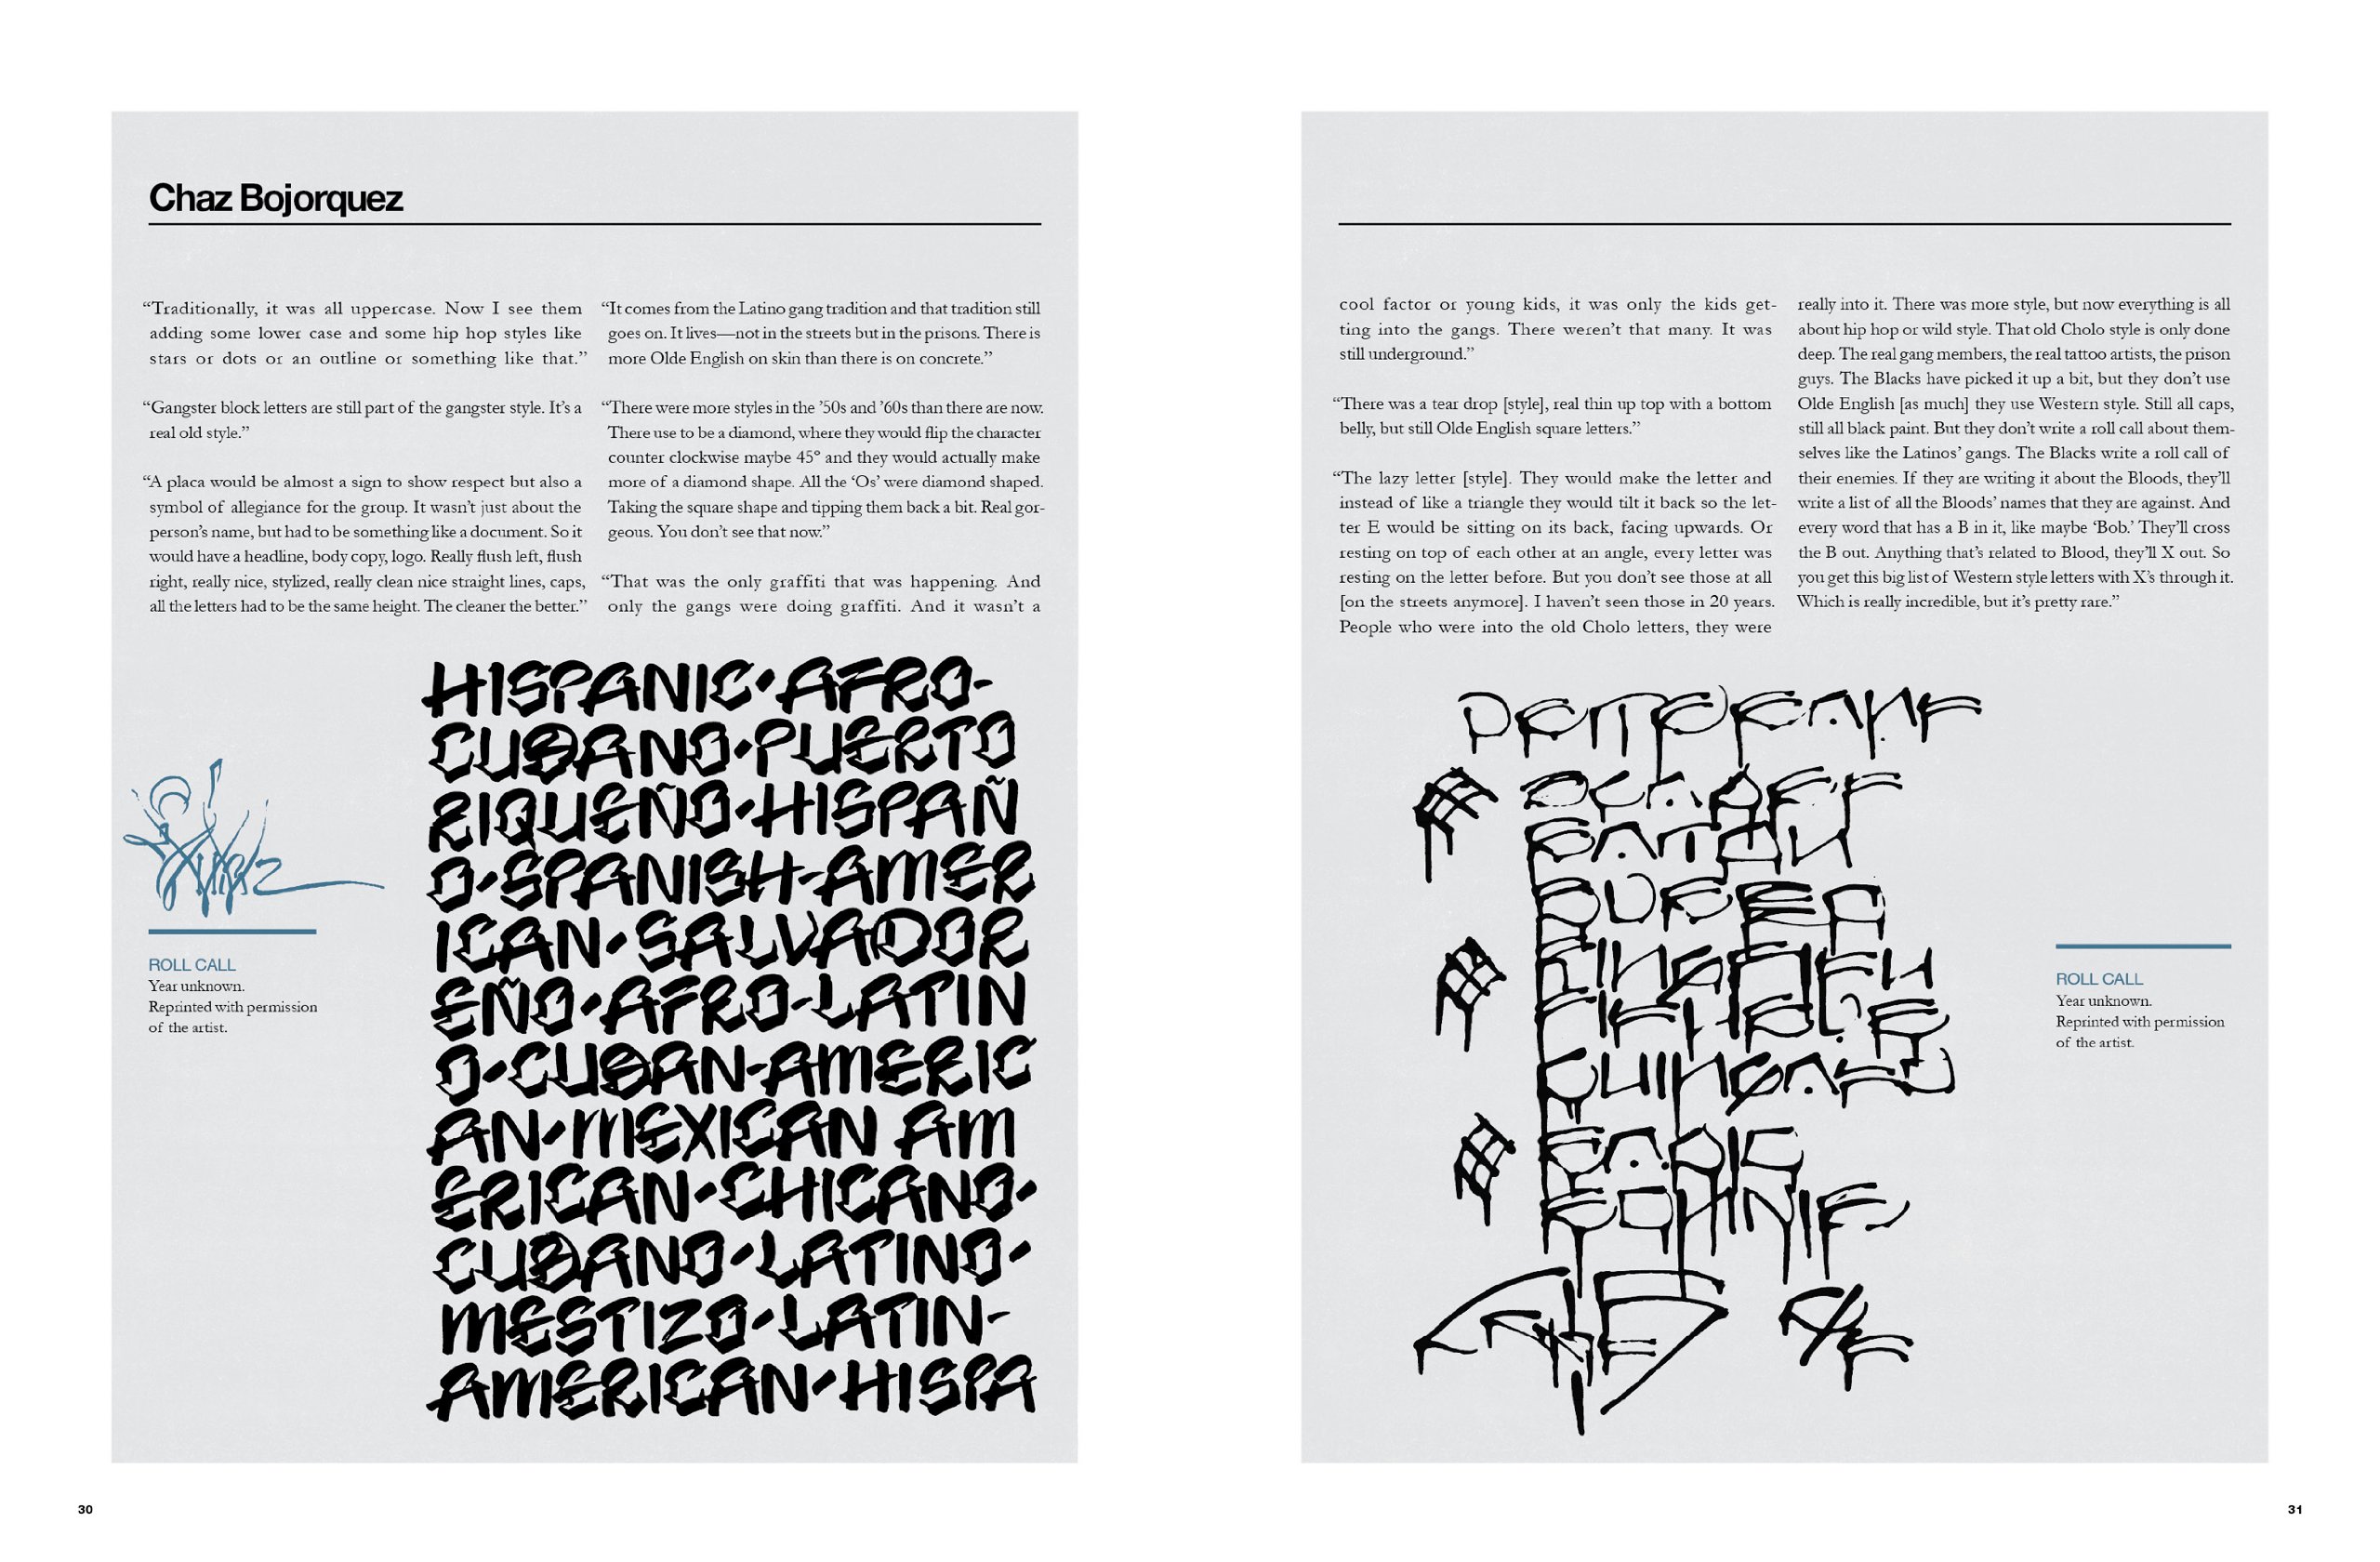 Chaz Bojorquez
“Traditionally, it was all uppercase. Now I see them
adding some lower case and some hip hop styles like
stars or dots or an outline or something like that.”
“Gangster block letters are still part of the gangster style. It’s a
real old style.”
“A placa would be almost a sign to show respect but also a
symbol of allegiance for the group. It wasn’t just about the
person’s name, but had to be something like a document. So it
would have a headline, body copy, logo. Really flush left, flush
right, really nice, stylized, really clean nice straight lines, caps,
all the letters had to be the same height. The cleaner the better.”
“It comes from the Latino gang tradition and that tradition still
goes on. It lives—not in the streets but in the prisons. There is
more Olde English on skin than there is on concrete.”
“There were more styles in the ’50s and ’60s than there are now.
There use to be a diamond, where they would flip the character
counter clockwise maybe 45º and they would actually make
more of a diamond shape. All the ‘Os’ were diamond shaped.
Taking the square shape and tipping them back a bit. Real gor-
geous. You don’t see that now.”
“That was the only graffiti that was happening. And
only the gangs were doing graffiti. And it wasn’t a
HISPANIC•AFRO-
CUBANO•PUERTO
RIQUEÑO•HISPAÑ
O•SPANISH-AMER
ICAN•SALVADOR
EÑO•AFRO-LATIN
O•CUBAN-AMERIC
AN•MEXICAN AM
ERICAN•CHICANO•
CUBANO•LATINO•
MESTIZO•LATIN-
AMERICAN•HISPA
ROLL CALL
Year unknown.
Reprinted with permission
of the artist.
30
cool factor or young kids, it was only the kids get-
ting into the gangs. There weren’t that many. It was
still underground.”
“There was a tear drop [style], real thin up top with a bottom
belly, but still Olde English square letters.”
“The lazy letter [style]. They would make the letter and
instead of like a triangle they would tilt it back so the let-
ter E would be sitting on its back, facing upwards. Or
resting on top of each other at an angle, every letter was
resting on the letter before. But you don’t see those at all
[on the streets anymore]. I haven’t seen those in 20 years.
People who were into the old Cholo letters, they were
really into it. There was more style, but now everything is all
about hip hop or wild style. That old Cholo style is only done
deep. The real gang members, the real tattoo artists, the prison
guys. The Blacks have picked it up a bit, but they don’t use
Olde English [as much] they use Western style. Still all caps,
still all black paint. But they don’t write a roll call about them-
selves like the Latinos’ gangs. The Blacks write a roll call of
their enemies. If they are writing it about the Bloods, they’ll
write a list of all the Bloods’ names that they are against. And
every word that has a B in it, like maybe ‘Bob.’ They’ll cross
the B out. Anything that’s related to Blood, they’ll X out. So
you get this big list of Western style letters with X’s through it.
Which is really incredible, but it’s pretty rare.”
ROLL CALL
Year unknown.
Reprinted with permission
of the artist.
31